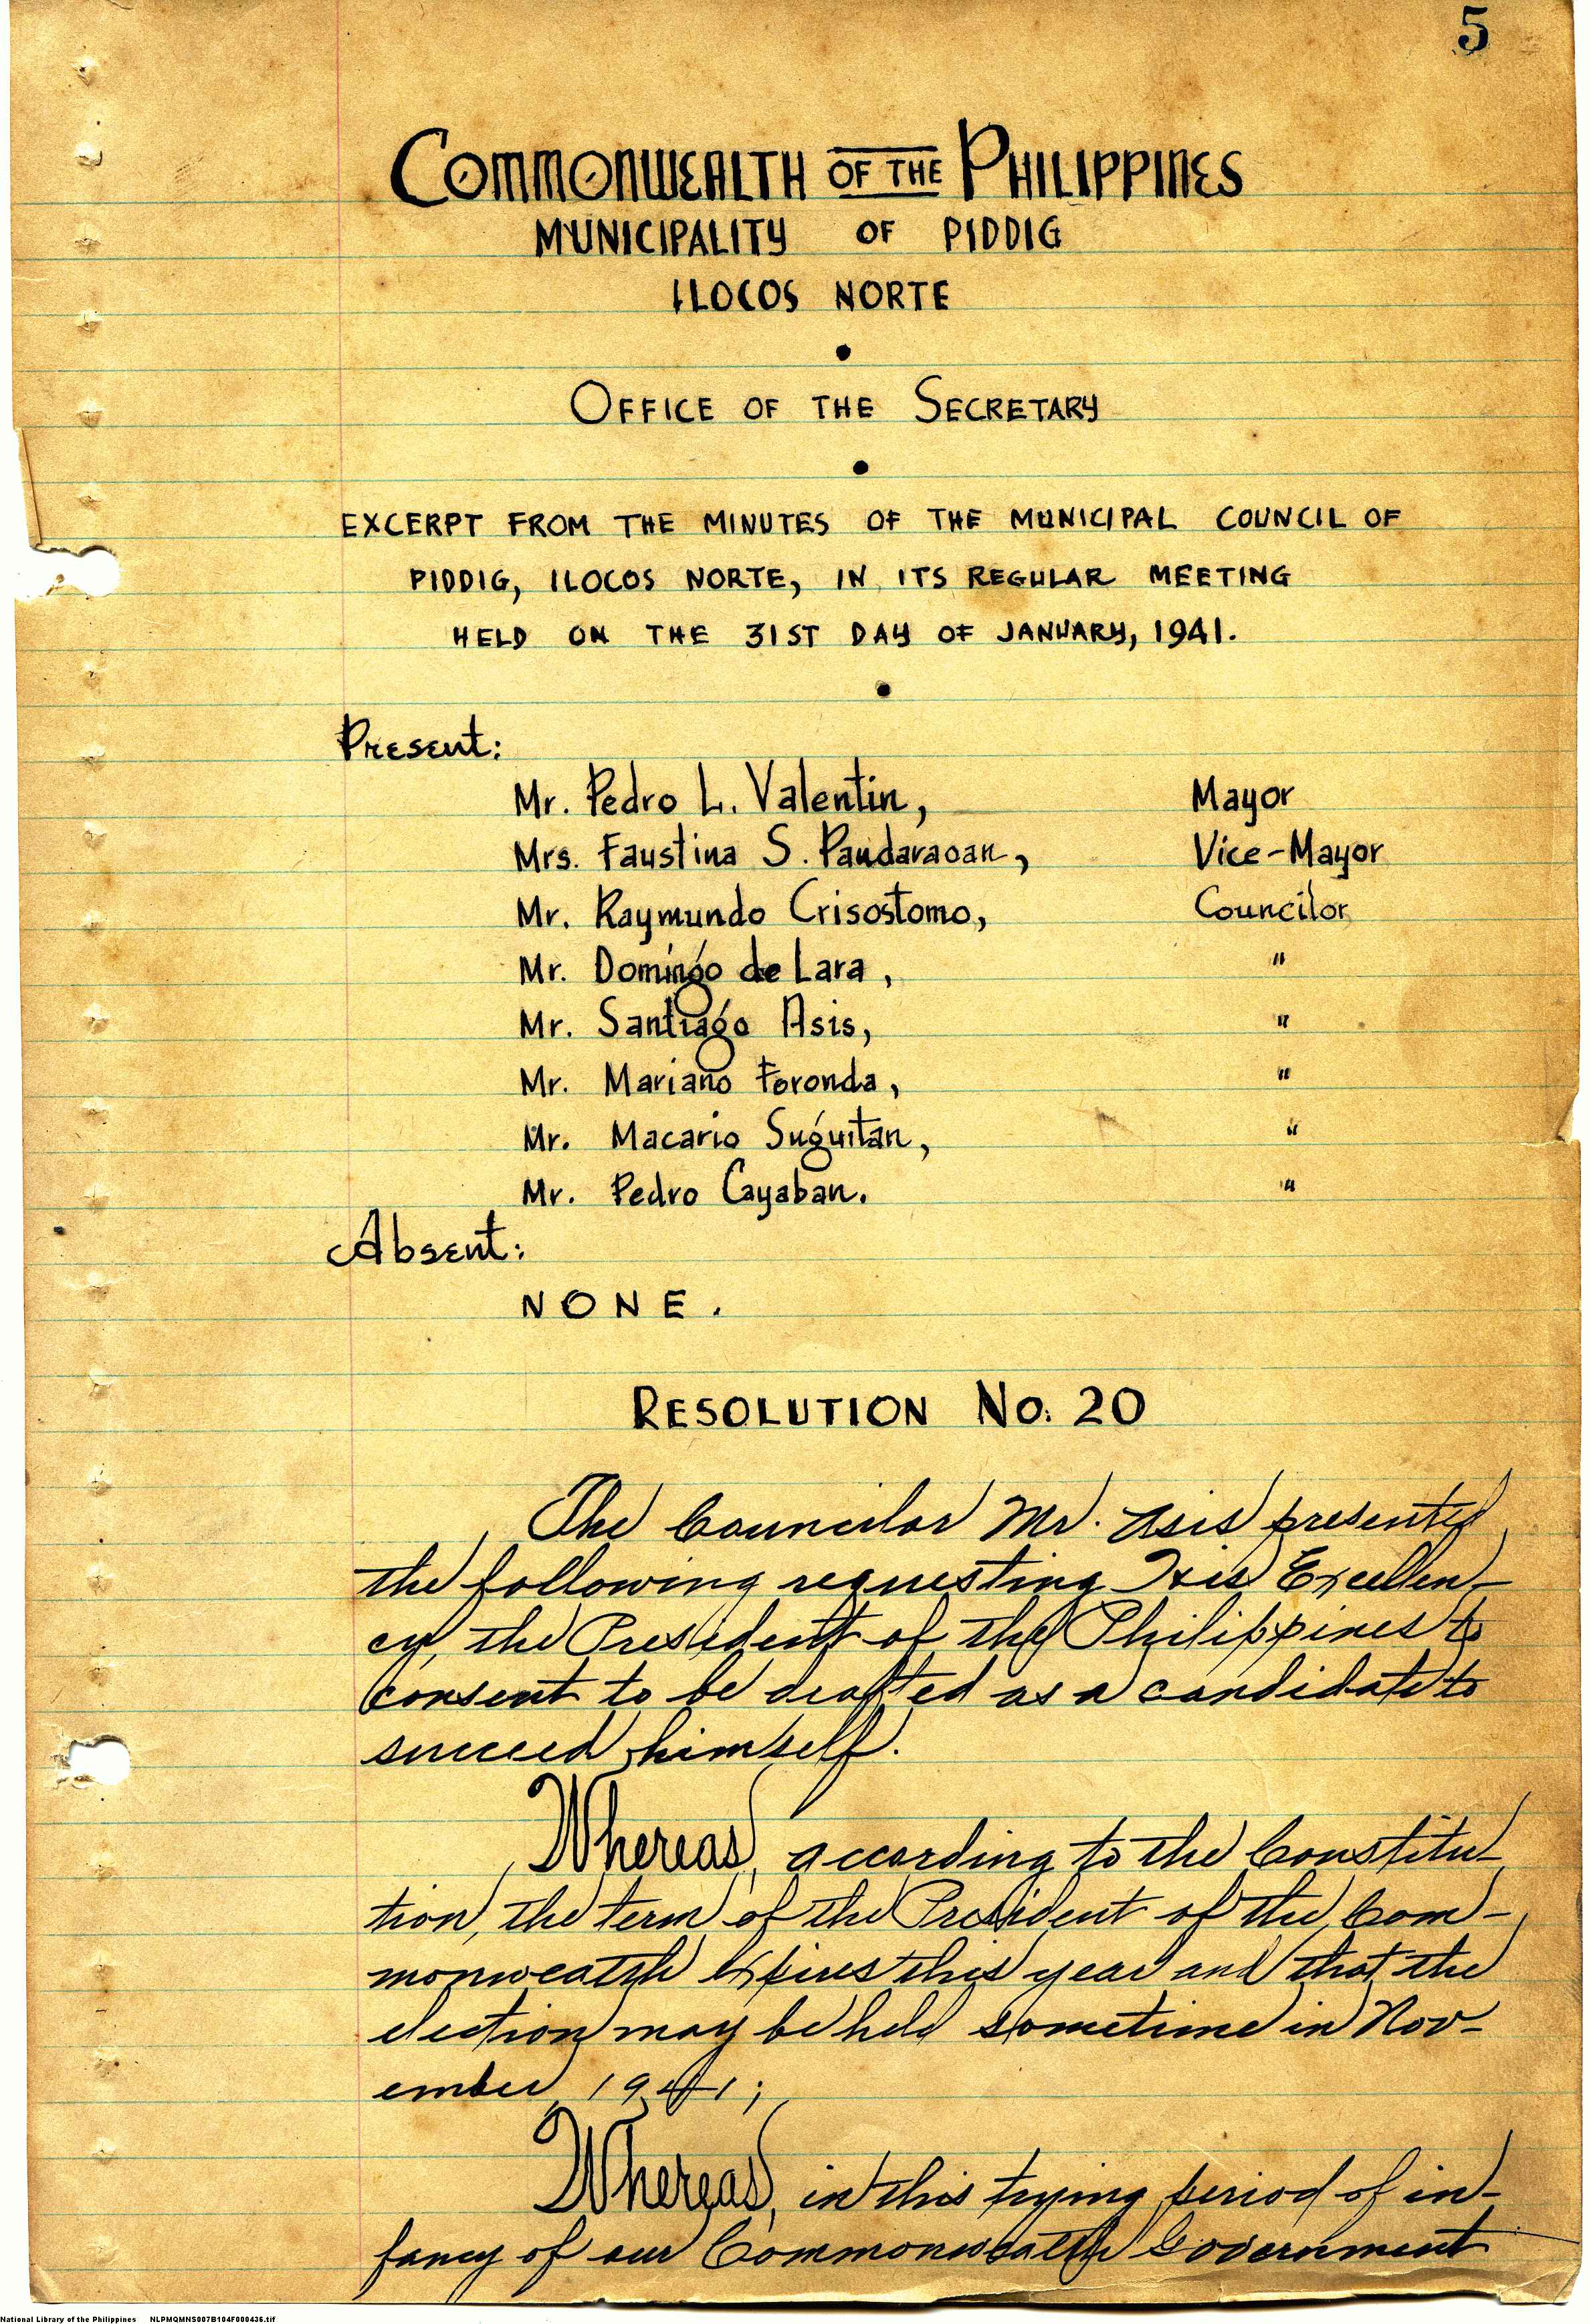 5
COMMONWEALTH OF THE PHILIPPINES
MUNICIPALITY OF PIDDIG
ILOCOS NORTE
OFFICE OF THE SECRETARY
EXCERPT FROM THE MINUTES OF THE MUNICIPAL COUNCIL OF
PIDDIG, ILOCOS NORTE, IN ITS REGULAR MEETING
HELD ON THE 31ST DAY OF JANUARY, 1941.
Present:
Mr. Pedro L. Valentin, Mayor
Mrs. Faustina S. Pandaraoan, Vice-Mayor
Mr. Raymundo Crisostomo, Councilor
Mr. Domingo de Lara, "
Mr. Santiago Asis, "
Mr. Mariano Foronda, "
Mr. Macario Suguitan, "
Mr. Pedro Cayaban. "
Absent:
NONE.
RESOLUTION No. 20
The Councilor Mr. Asis presented
the following requesting His Excellen-
cy, the President of the Philippines to
consent to be drafted as a candidate to
succeed himself.
Whereas, according to the Constitu-
tion, the term of the President of the Com-
monwealth expires this year and that the
election may be held sometime in Nov-
ember, 1941;
Whereas, in this trying period of in-
fancy of our Commonwealth Government
National Library of the Philippines NLPMQMNS007B104F000436.tif